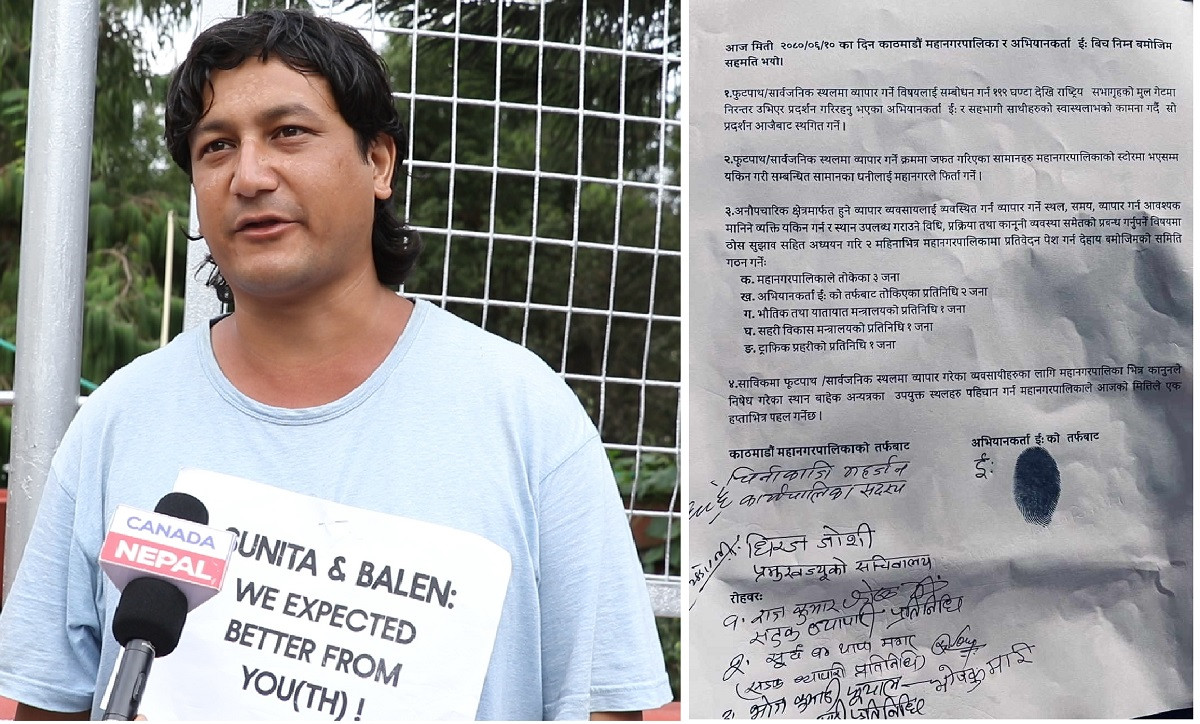 CANADA
NEPAL
SUNITA & BALEN:
WE EXPECTED
BETTER FROM
YOU(TH) !
आज मिती २०८०/०६/१० का दिन काठमाडौं महानगरपालिका र अभियानकर्ता ई: बिच निम्न बमोजिम
सहमति भयो।
१.फुटपाथ/सार्वजनिक स्थलमा व्यापार गर्ने विषयलाई सम्बोधन गर्न ११९ घण्टा देखि राष्ट्रिय सभागृहको मुल गेटमा
निरन्तर उभिएर प्रदर्शन गरिरहनु भएका अभियानकर्ता ई: र सहभागी साथीहरुको स्वास्थलाभको कामना गर्दै सो
प्रदर्शन आजैबाट स्थगित गर्ने।
२.फुटपाथ/सार्वजनिक स्थलमा व्यापार गर्ने क्रममा जफत गरिएका सामानहरु महानगरपालिकाको स्टोरमा भएसम्म
यकिन गरी सम्बन्धित सामानका धनीलाई महानगरले फिर्ता गर्ने।
३.अनौपचारिक क्षेत्रमार्फत हुने व्यापार व्यवसायलाई व्यवस्थित गर्न व्यापार गर्ने स्थल, समय, व्यापार गर्न आवश्यक
मानिने व्यक्ति यकिन गर्न र स्थान उपलब्ध गराउने विधि, प्रक्रिया तथा कानूनी व्यवस्था समेतको प्रबन्ध गर्नुपर्ने विषयमा
ठोस सुझाव सहित अध्ययन गरि २ महिनाभित्र महानगरपालिकामा प्रतिवेदन पेश गर्न देहाय बमोजिमको समिति
गठन गर्ने:
क. महानगरपालिकाले तोकेका ३ जना
ख. अभियानकर्ता ई: को तर्फबाट तोकिएका प्रतिनिधि २ जना
ग. भौतिक तथा यातायात मन्त्रालयको प्रतिनिधि १ जना
घ. सहरी विकास मन्त्रालयको प्रतिनिधि १ जना
ङ. ट्राफिक प्रहरीको प्रतिनिधि १ जना
४.साविकमा फूटपाथ /सार्वजनिक स्थलमा व्यापार गरेका व्यवसायीहरुका लागि महानगरपालिका भित्र कानुनले
निषेध गरेका स्थान बाहेक अन्यत्रका उपयुक्त स्थलहरु पहिचान गर्न महानगरपालिकाले आजको मितिले एक
हप्ताभित्र पहल गर्नेछ।
काठमाडौं महानगरपालिकाको तर्फबाट
अभियानकर्ता ई: को तर्फबाट
ई:
चिनीकाजि महर्जन
कार्यपालिका सदस्य
धिरज जोशी
प्रमुखज्यूको सचिवालय
रोहवर:
१. राज कुमार
सडक व्यापारी प्रतिनिधि
२. सूर्य थापा मगर
(सडक व्यापारी प्रतिनिधि)
३. भोज कुमारी
प्रतिनिधि